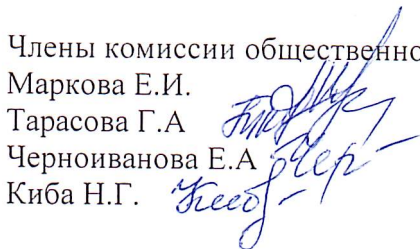 Члены комиссии общественно
Маркова Е.И.
Тарасова Г.А
Черноиванова Е.А
Киба Н.Г.